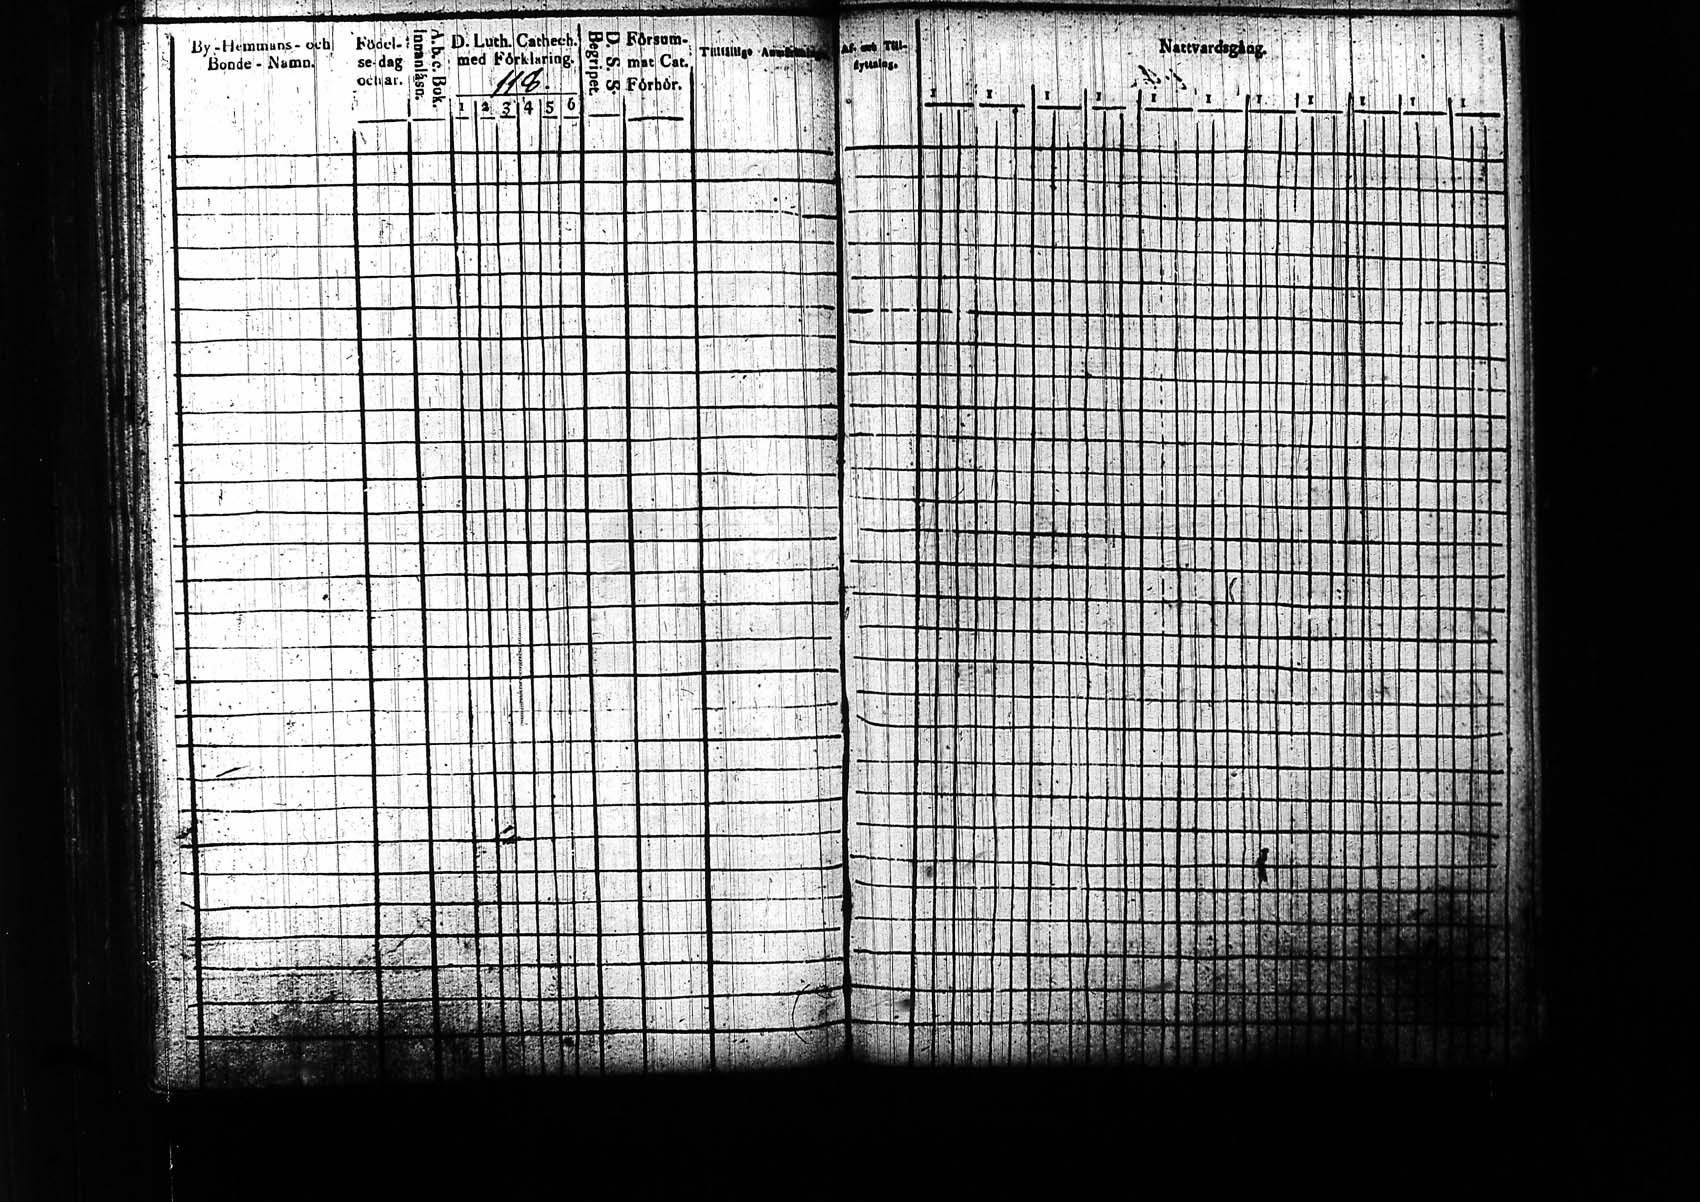 By-Hemmans- och
Bonde-Namn.
Födel-
se-dag
och ar.
A. b. c. Bok.
Innanläsn.
D. Luth. Cathech.
med Förklaring.
118.
1 2 3 4 5 6
D. S. S.
Begripet.
Försum-
mat Cat.
Förhör.
Tillfällige Anmärkningar
Af- och Till-
flyttning.
Nattvardsgång.
1 1 1 1 1 1 1 1 1 1 1